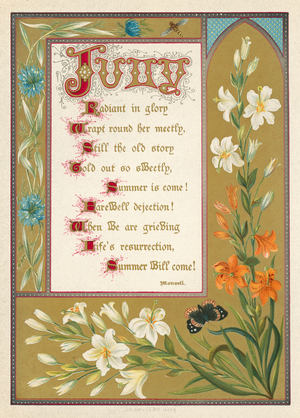 July
Radiant in glory
Wrapt round her meetly,
Still the old story
Told out so sweetly,
Summer is come!
Farewell dejection!
When we are grieving
Life's resurrection,
Summer will come!
Monsell.